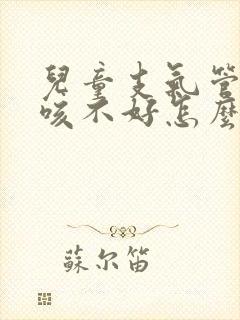 兒童支氣管
咳不好怎麼
蘇尔笛